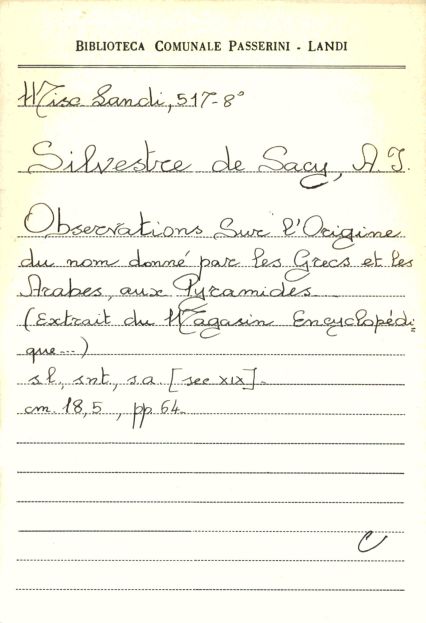 BIBLIOTECA COMUNALE PASSERINI - LANDI
Misc Landi, 517-8°
Silvestre de Sacy, A I.
Observations Sur l'Origine
du nom donné par les Grecs et les
Arabes, aux Pyramides.
(Extrait du Magasin Encyclopédi=
que...)
s.l, snt, s.a. [sec XIX].
cm. 18,5, pp 64.
C